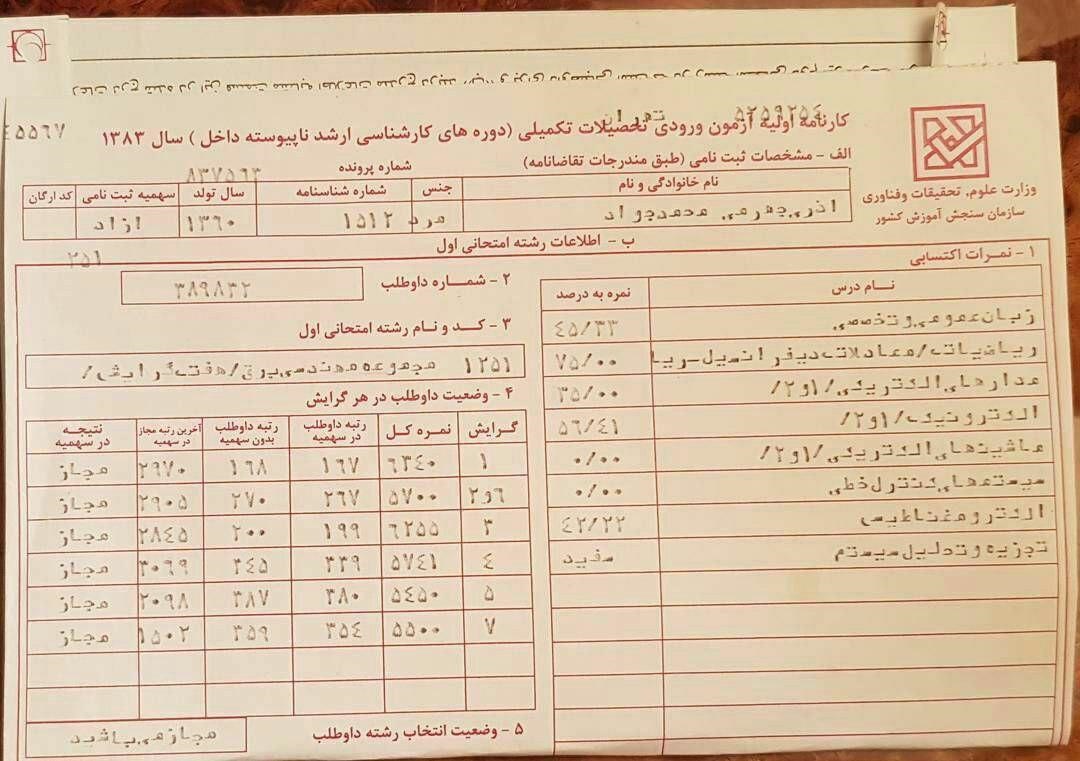 ۴۵۵۶۷
تهران ۵۲۵۹۲۵۴
کارنامه اولیه آزمون ورودی تحصیلات تکمیلی (دوره های کارشناسی ارشد ناپیوسته داخل) سال ۱۳۸۳
وزارت علوم, تحقیقات وفناوری
سازمان سنجش آموزش کشور
الف - مشخصات ثبت نامی (طبق مندرجات تقاضانامه)
شماره پرونده
۸۳۷۵۶۳
نام خانوادگی و نام جنس شماره شناسنامه سال تولد سهمیه ثبت نامی کد ارگان
اذری جهرمی محمدجواد مرد ۱۵۱۲ ۱۳۶۰ ازاد
ب - اطلاعات رشته امتحانی اول
۲۵۱
۱ - نمرات اکتسابی
نام درس نمره به درصد
زبان عمومی و تخصصی ۴۵/۳۳
ریاضیات/معادلات دیفرانسیل-ریا ۷۵/۰۰
مدارهای الکتریکی/۱و۲/ ۳۵/۰۰
الکترونیک/۱و۲/ ۵۶/۴۱
ماشینهای الکتریکی/۱و۲/ ۰/۰۰
سیستمهای کنترل خطی ۰/۰۰
الکترومغناطیس ۴۲/۲۲
تجزیه و تحلیل سیستم سفید
۲ - شماره داوطلب ۳۸۹۸۳۲
۳ - کد و نام رشته امتحانی اول
۱۲۵۱ مجموعه مهندسی برق/هفت گرایش/
۴ - وضعیت داوطلب در هر گرایش
گرایش نمره کل رتبه داوطلب در سهمیه رتبه داوطلب بدون سهمیه آخرین رتبه مجاز در سهمیه نتیجه در سهمیه
۱ ۶۳۴۰ ۱۶۷ ۱۶۸ ۲۹۷۰ مجاز
۲و۶ ۵۷۰۰ ۲۶۷ ۲۷۰ ۲۹۰۵ مجاز
۳ ۶۲۵۵ ۱۹۹ ۲۰۰ ۲۸۴۵ مجاز
۴ ۵۷۴۱ ۳۳۹ ۳۴۵ ۳۰۶۹ مجاز
۵ ۵۴۵۰ ۳۸۰ ۳۸۷ ۲۰۹۸ مجاز
۷ ۵۵۰۰ ۳۵۴ ۳۵۹ ۱۵۰۲ مجاز
۵ - وضعیت انتخاب رشته داوطلب مجاز می باشید